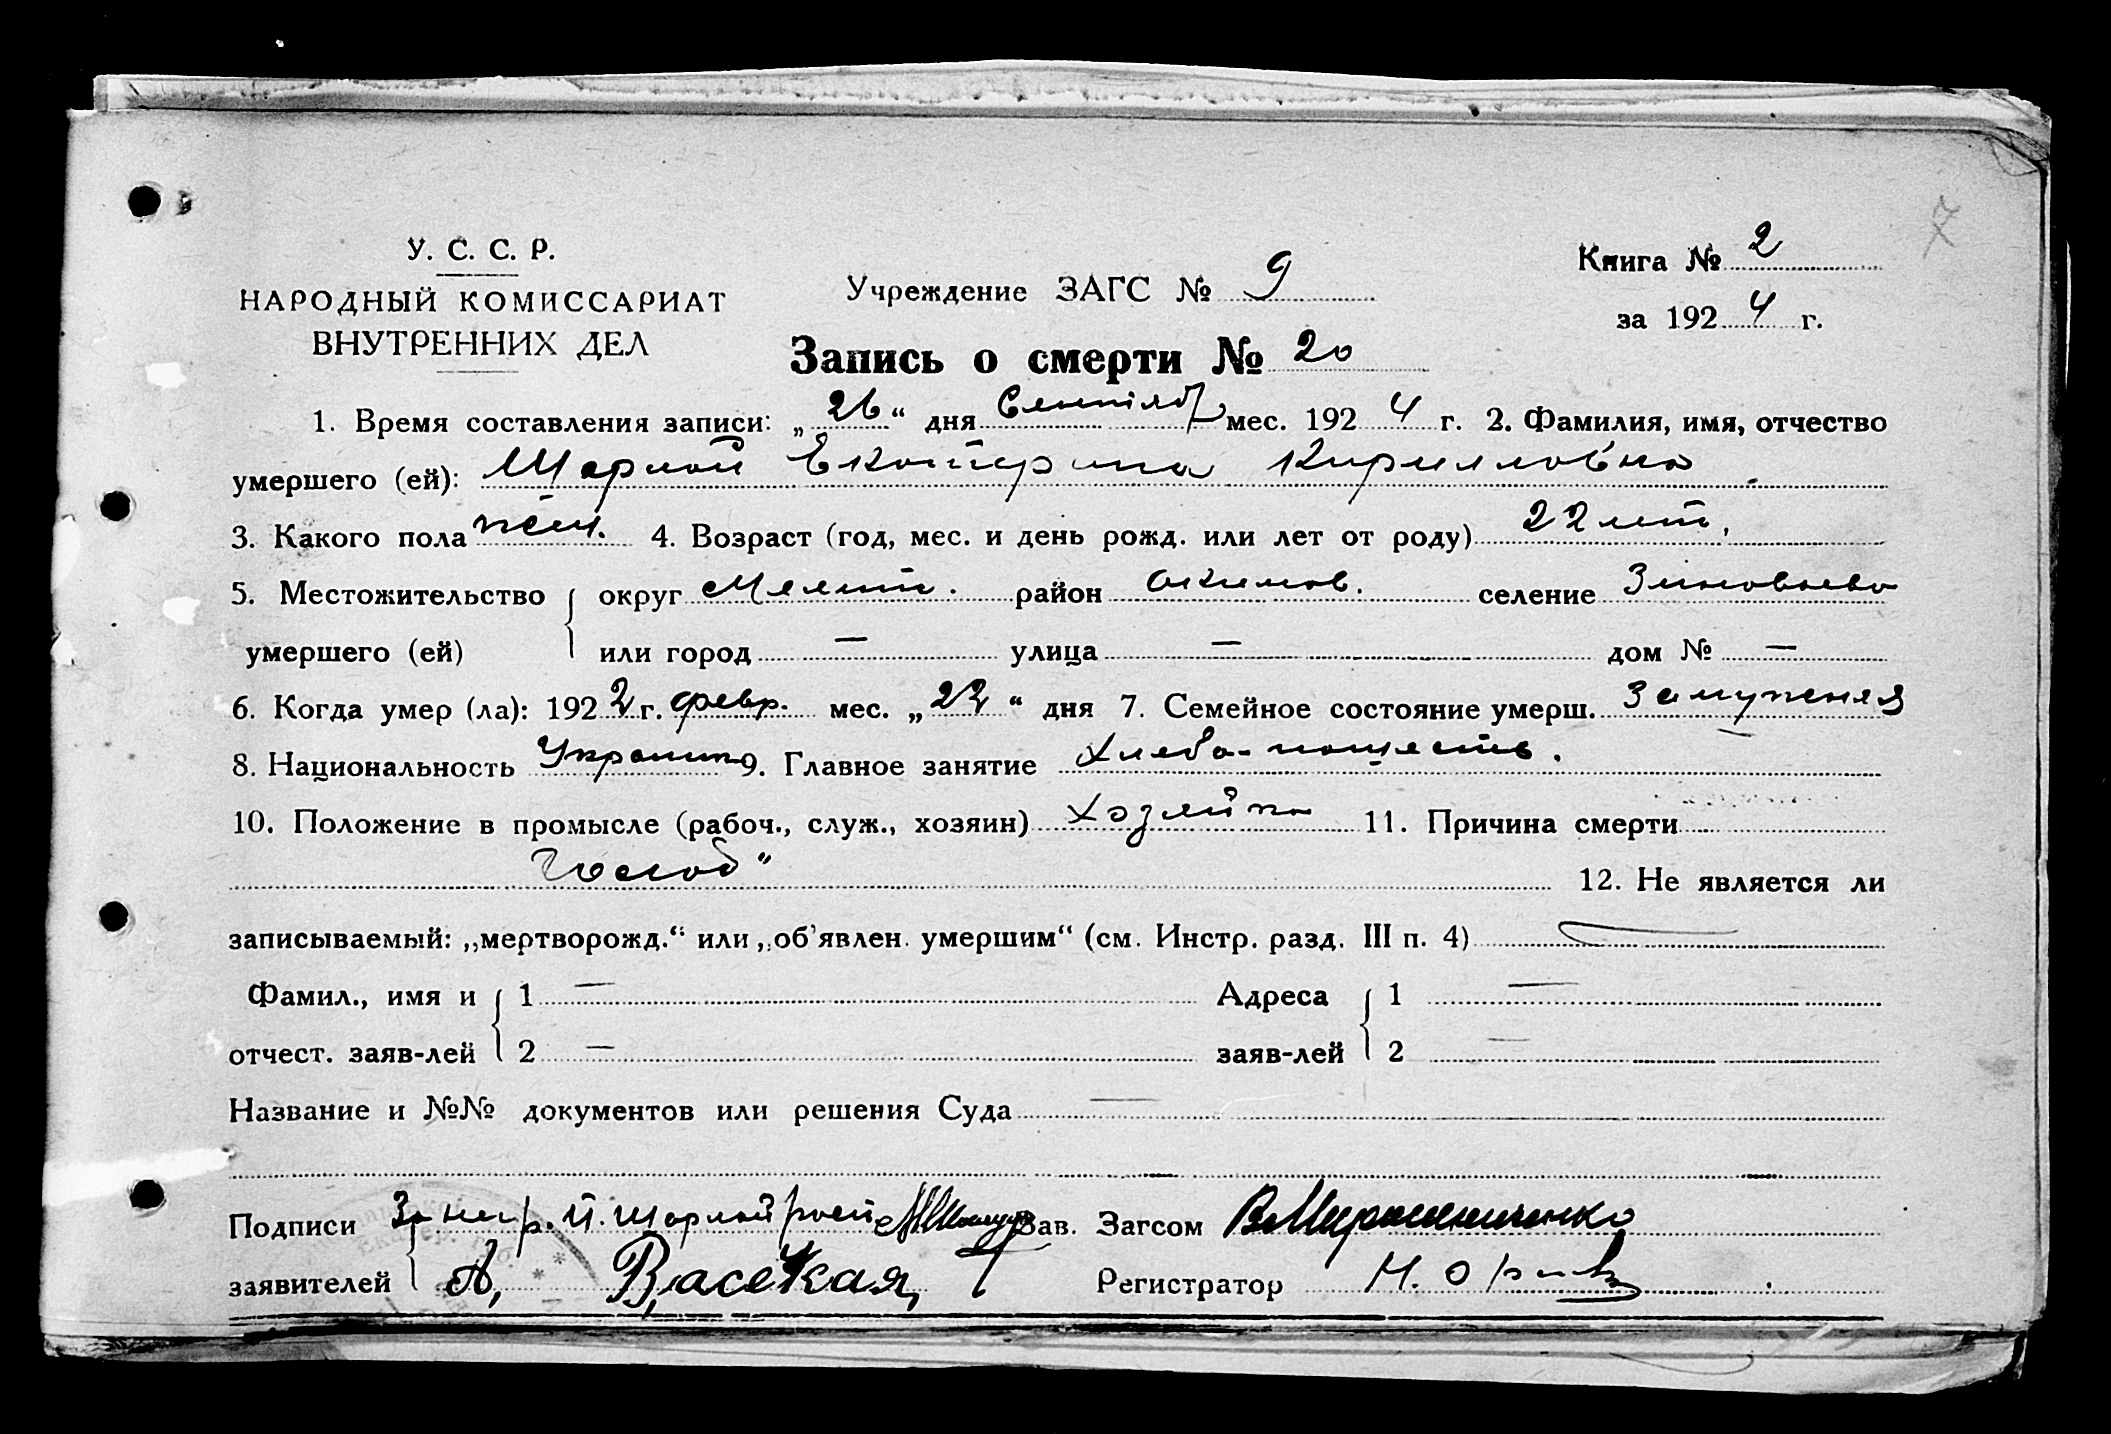 У. С. С. Р.
НАРОДНЫЙ КОМИССАРИАТ
ВНУТРЕННИХ ДЕЛ
Учреждение ЗАГС № 9
Книга № 2
за 1924 г.
Запись о смерти № 20
1. Время составления записи: „26“ дня Сентябр мес. 1924 г. 2. Фамилия, имя, отчество
умершего (ей): Шарлай Екатерина Кирилловна
3. Какого пола жен. 4. Возраст (год, мес. и день рожд. или лет от роду) 22 лет.
5. Местожительство округ Мелит. район Акимов. селение Зиновьево
умершего (ей) или город — улица — дом № —
6. Когда умер (ла): 1922 г. февр. мес. „22“ дня 7. Семейное состояние умерш. Замужняя
8. Национальность Украин 9. Главное занятие Хлебо-пашеств.
10. Положение в промысле (рабоч., служ., хозяин) Хозяйка 11. Причина смерти
Голод"
12. Не является ли
записываемый: „мертворожд.“ или „об'явлен. умершим“ (см. Инстр. разд. III п. 4) —
Фамил., имя и 1 — Адреса 1 —
отчест. заяв-лей 2 — заяв-лей 2 —
Название и №№ документов или решения Суда —
Подписи За негр. И. Шарлай Зав. Загсом В. Мирошниченко
заявителей А. Васецкая, Регистратор Н.